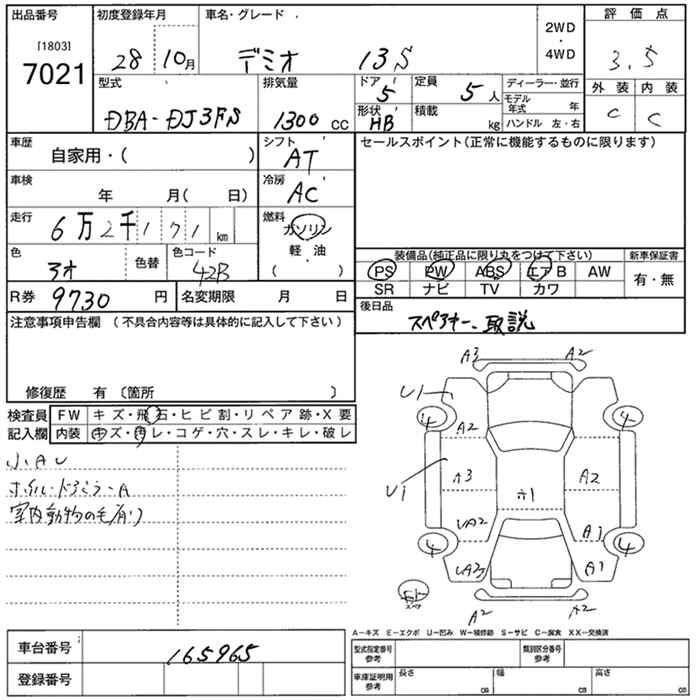 出品番号
[1803]
7021
初度登録年月
28 10月
車名・グレード
デミオ 13S
2WD
・
4WD
評価点
3.5
外装 内装
C C
型式
DBA-DJ3FS
排気量
1300 CC
ドア
5
定員
5 人
形状
HB
積載
kg
ディーラー・並行
モデル年式 年
ハンドル 左・右
車歴
自家用・( )
シフト
AT
車検
年 月( 日)
冷房
AC
走行
6万2千171 km
燃料
ガソリン
軽・油
・
( )
色
アオ
色替
色コード
42B
R券
9730 円
名変期限 月 日
セールスポイント(正常に機能するものに限ります)
装備品(純正品に限り丸をつけて下さい)
PS PW ABS エアB AW
SR ナビ TV カワ
新車保証書
有・無
後日品
スペアキー、取説
注意事項申告欄 (不具合内容等は具体的に記入して下さい)
修復歴 有〔箇所 〕
検査員
記入欄
FW キズ・飛石・ヒビ割・リペア跡・X要
内装 キズ・汚レ・コゲ・穴・スレ・キレ・破レ
小、AU
ホイル・ドアミラーA
室内動物の毛有り
A3 A2
U1
4 4
A2
U1 A3 A2
ホ1
UA2 A1
4 4
UA3 A1
スペア
A2 A2
車台番号
165965
登録番号
A−キズ E−エクボ U−凹み W−補修跡 S−サビ C−腐食 XX−交換済
型式指定番号
参考
類別区分番号
参考
車庫証明用
参考
長さ cm
幅 cm
高さ cm